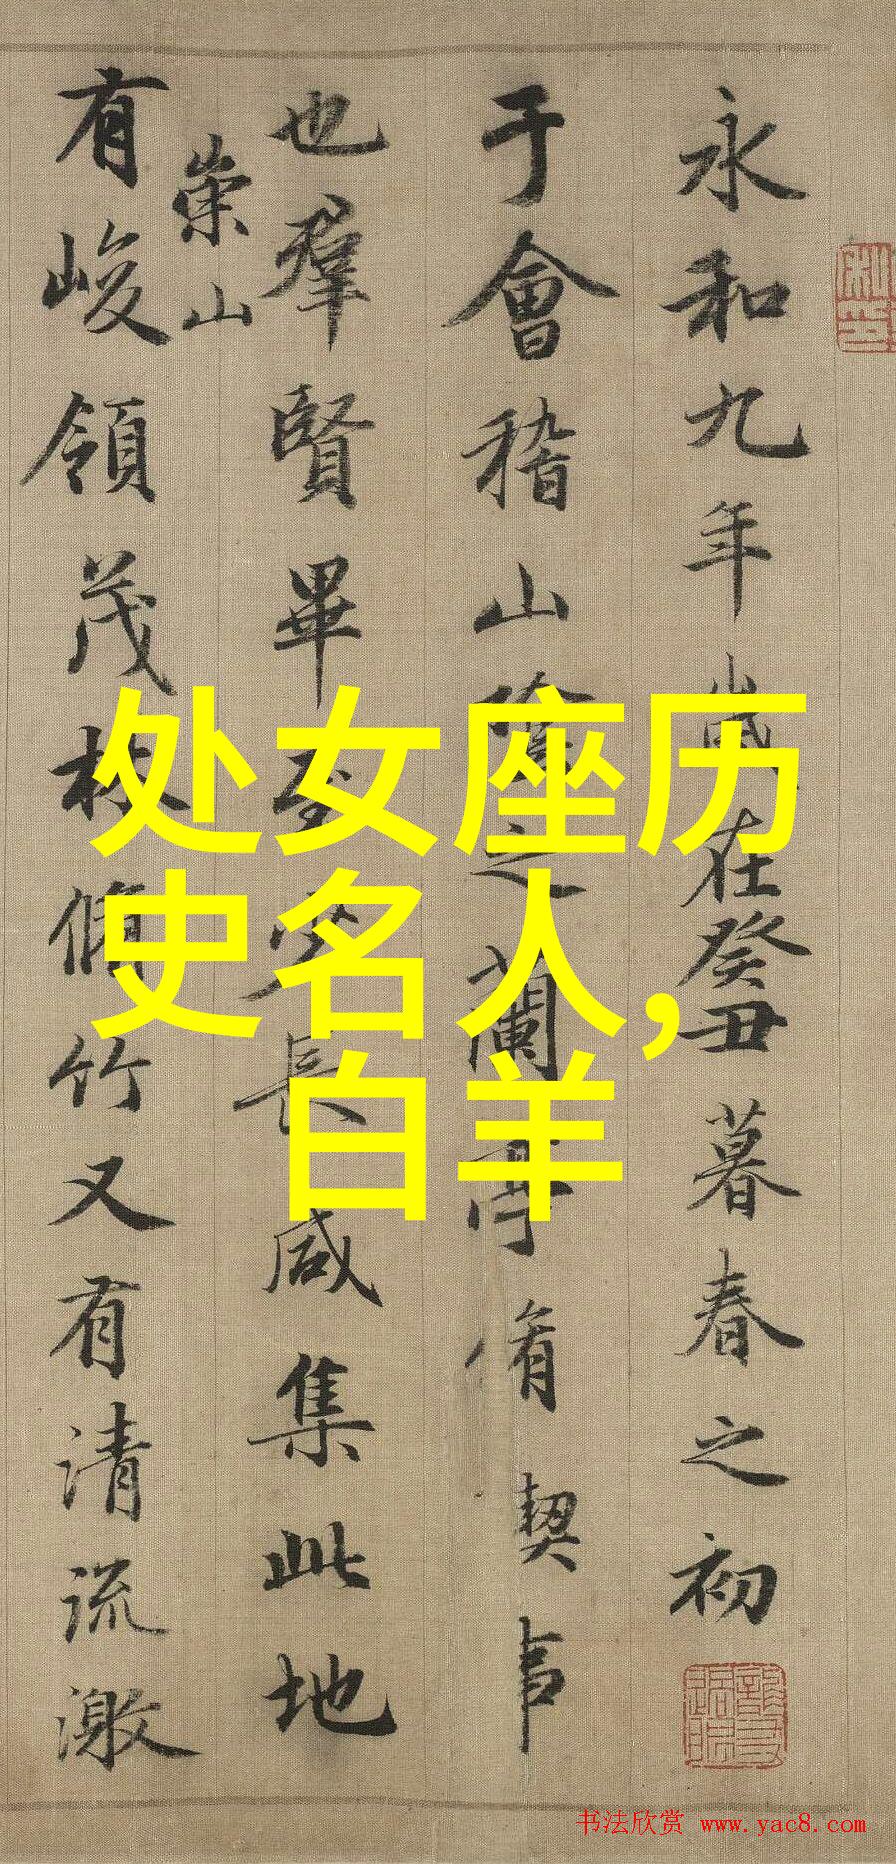 永和九年歲在癸丑暮春之初
于會稽山陰之蘭亭脩禊事
也羣賢畢至少長咸集此地
有崇山峻領茂林脩竹又有清流激
处女座历
史名人，
白羊
书法欣赏 www.yac8.com